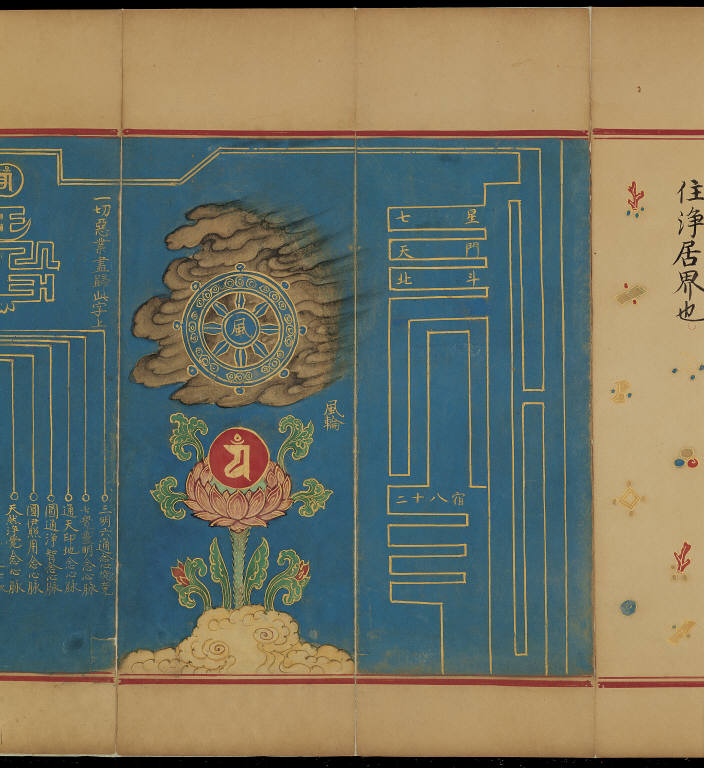 住淨居界也
七星
天門
北斗
二十八宿
風
風輪
一切惡業盡歸此字上
三明六通念心
通天印地念心脉
圓通淨智念心脉
圓伊照用念心脉
天然淨覺念心脉